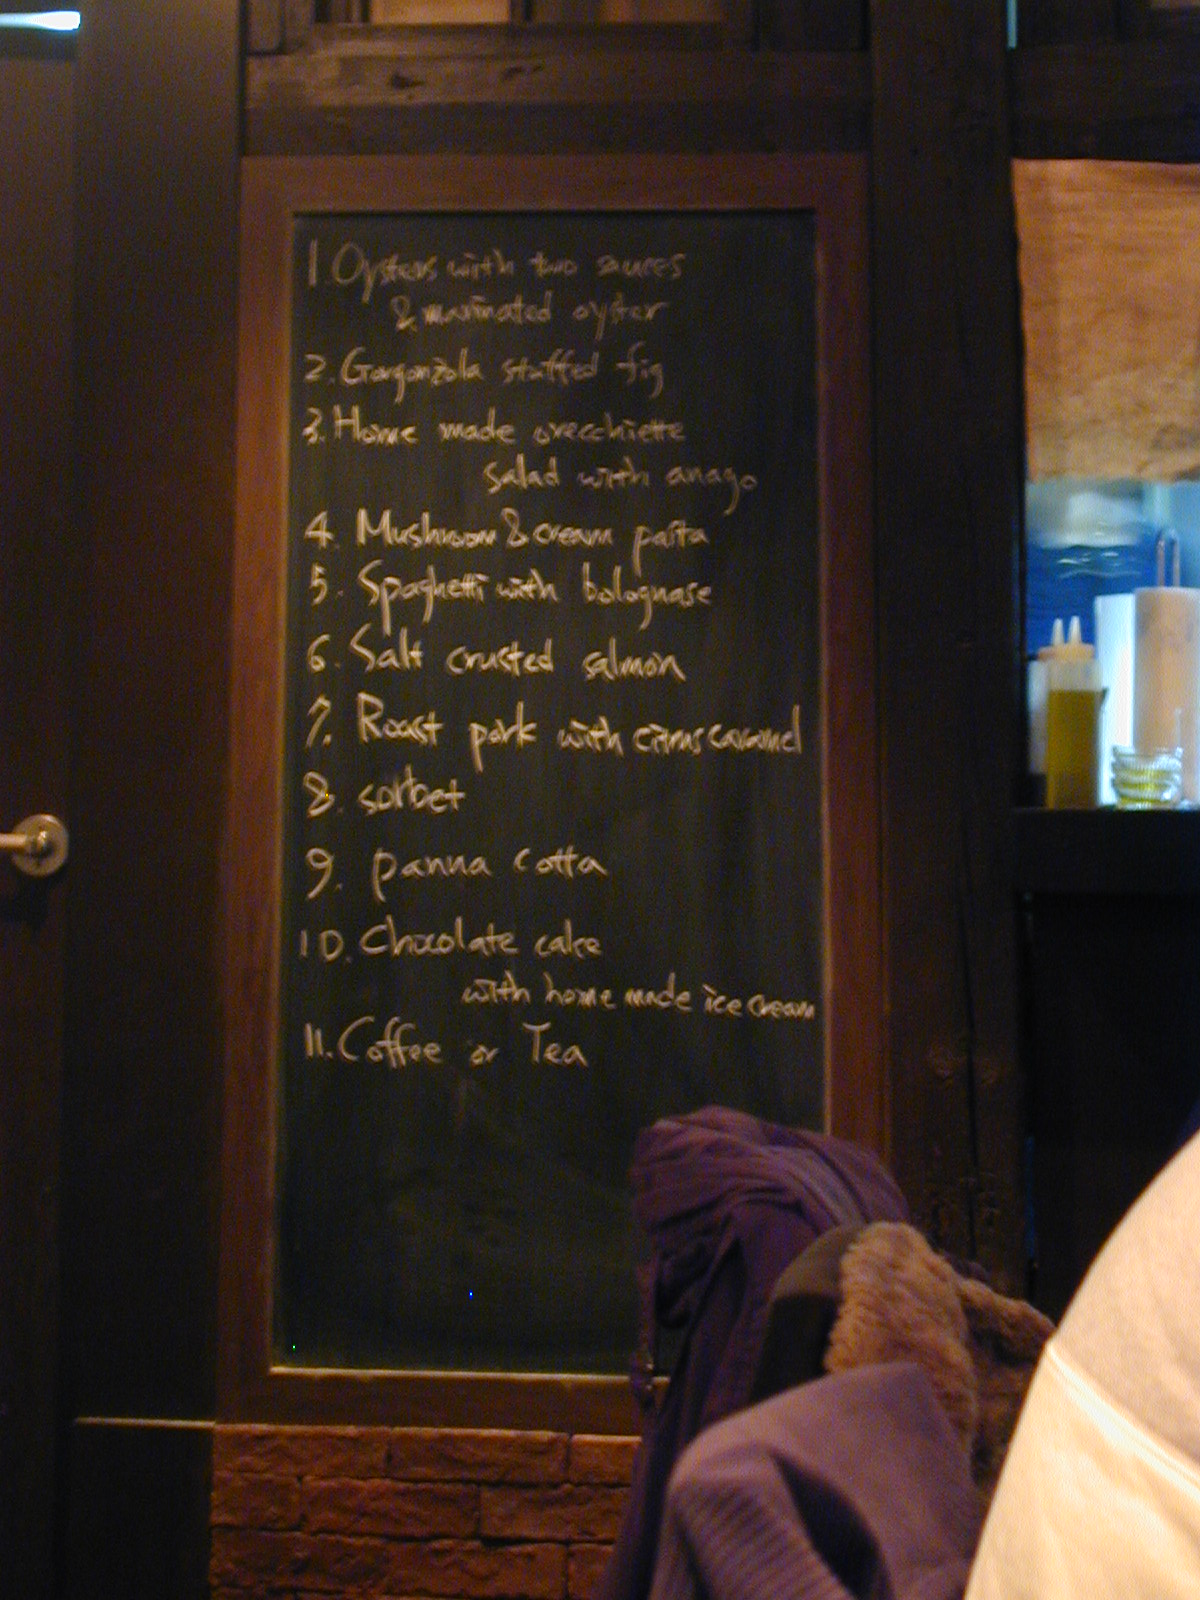 1. Oysters with two sauces
& marinated oyster
2. Gorgonzola stuffed fig
3. Home made orecchiette
salad with anago
4. Mushroom & cream pasta
5. Spaghetti with bolognase
6. Salt crusted salmon
7. Roast pork with citrus caramel
8. sorbet
9. panna cotta
10. Chocolate cake
with home made ice cream
11. Coffee or Tea